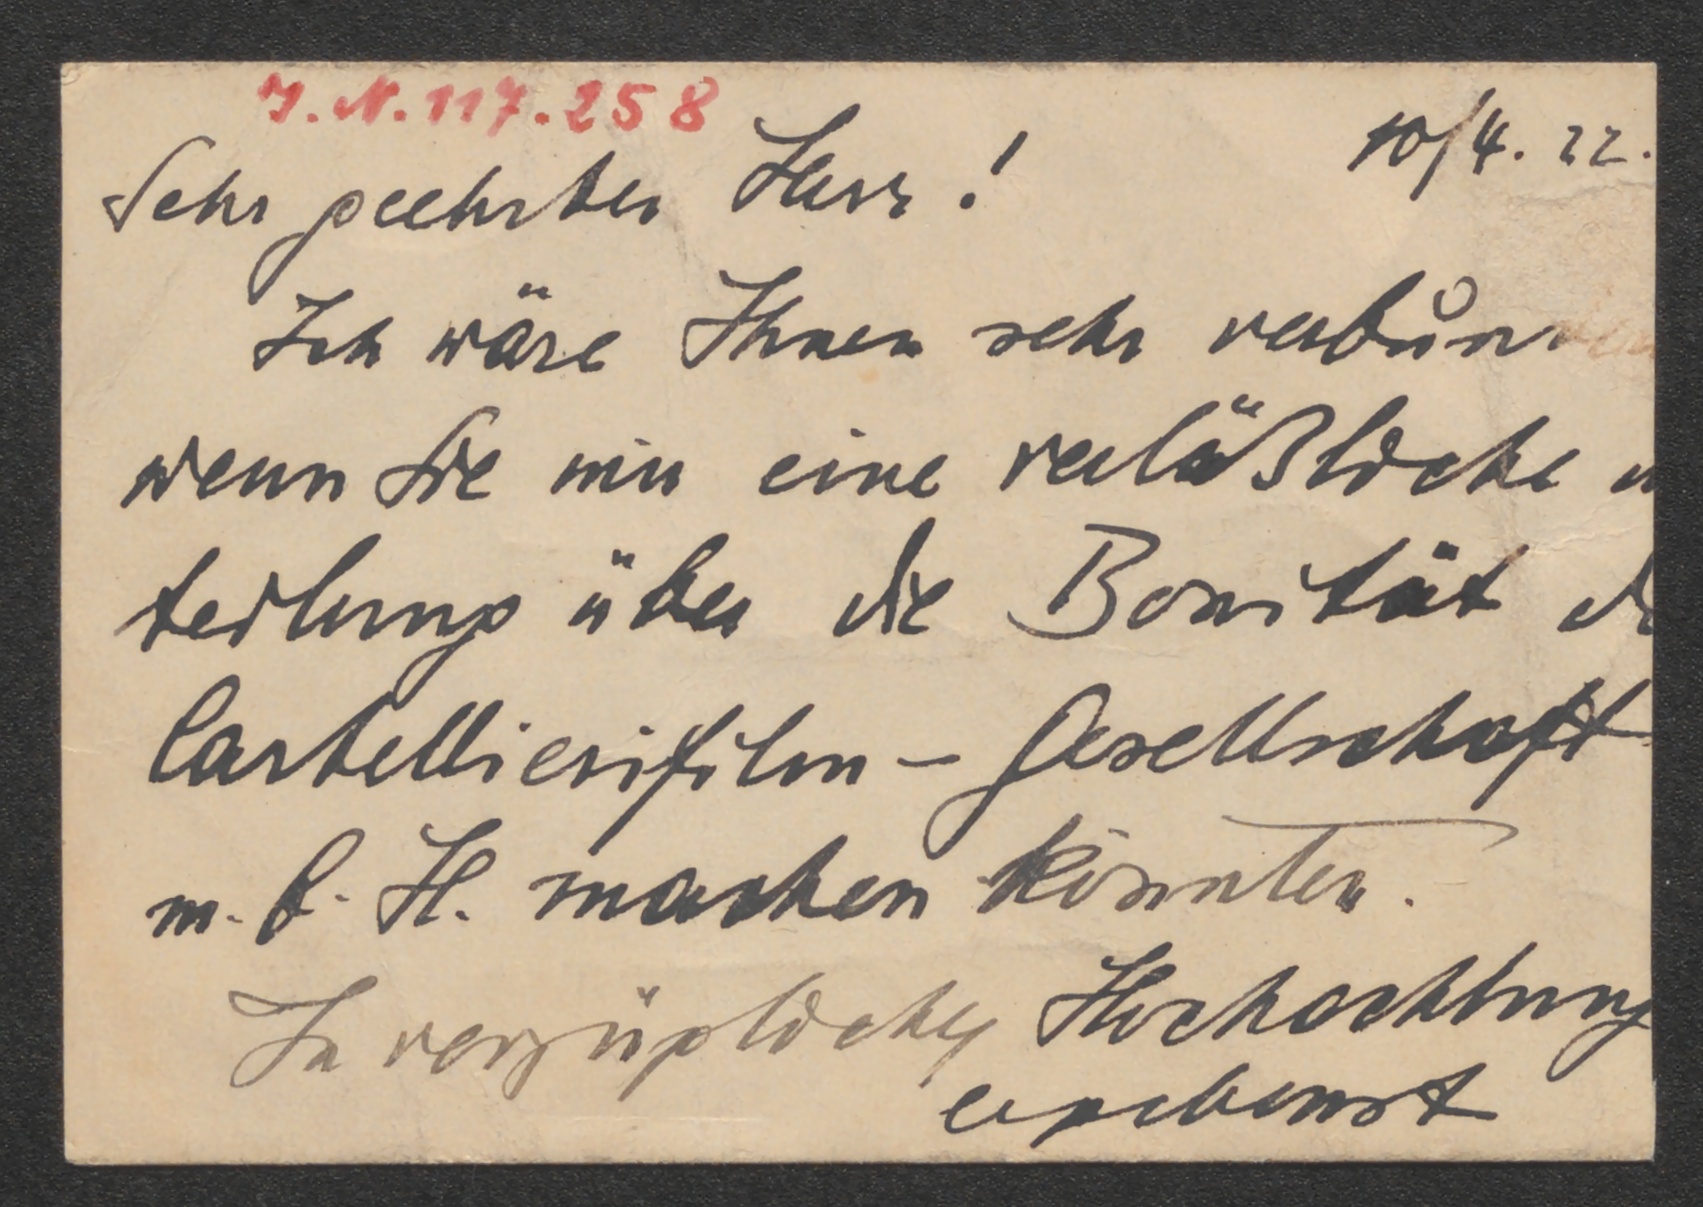 I. N. 117.258
10/4. 22.
Sehr geehrter Herr!
Ich wäre Ihnen sehr verbun
wenn Sie mir eine verläßliche
teilung über die Bonität
Castellierifilm - Gesellschaft
m. b. H. machen könnten.
In vorzüglicher Hochachtung
ergebenst